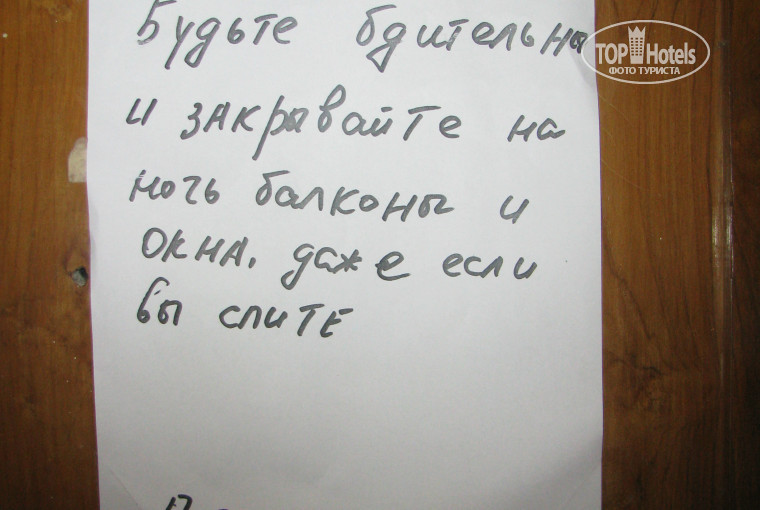 Будьте бдительны
и закрывайте на
ночь балконы и
окна, даже если
вы спите
TOP Hotels
ФОТО ТУРИСТА